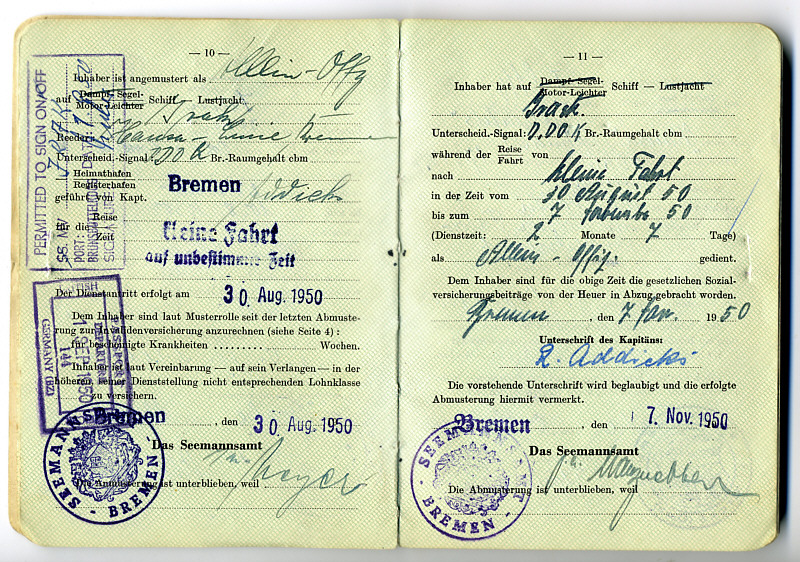 — 10 —
Inhaber ist angemustert als Allein-Offz
auf Dampf- Segel- Motor-Leichter Schiff — Lustjacht:
Reederei: Hansa-Linie Bremen
Unterscheid.-Signal: DDOK Br.-Raumgehalt cbm
Heimathafen
Registerhafen Bremen
geführt von Kapt. Addicks
für die Reise
Zeit
Kleine Fahrt
auf unbestimmte Zeit
Der Dienstantritt erfolgt am 30. Aug. 1950
Dem Inhaber sind laut Musterrolle seit der letzten Abmuste-
rung zur Invalidenversicherung anzurechnen (siehe Seite 4):
für bescheinigte Krankheiten ......... Wochen.
Inhaber ist laut Vereinbarung — auf sein Verlangen — in der
höheren, seiner Dienststellung nicht entsprechenden Lohnklasse
zu versichern.
Bremen, den 30 Aug. 1950
Das Seemannsamt
Meyer
Die Anmusterung ist unterblieben, weil
SEEMANNSAMT BREMEN
PERMITTED TO SIGN ON/OFF
SS. MV
PORT:
BRUNSBÜTTELKOOG
1 SEP 1950
144
GERMANY (BZ)
— 11 —
Inhaber hat auf Dampf- Segel- Motor-Leichter Schiff — Lustjacht
Unterscheid.-Signal: DDOK Br.-Raumgehalt cbm
während der Reise
Fahrt von
nach Kleine Fahrt
in der Zeit vom 30 August 50
bis zum 7 November 50
(Dienstzeit: 2 Monate 7 Tage)
als Allein-Offiz. gedient.
Dem Inhaber sind für die obige Zeit die gesetzlichen Sozial-
versicherungsbeiträge von der Heuer in Abzug gebracht worden.
Bremen, den 7 Nov. 1950
Unterschrift des Kapitäns:
R. Addicks
Die vorstehende Unterschrift wird beglaubigt und die erfolgte
Abmusterung hiermit vermerkt.
Bremen, den 7. Nov. 1950
Das Seemannsamt
Die Abmusterung ist unterblieben, weil
SEEMANNSAMT BREMEN